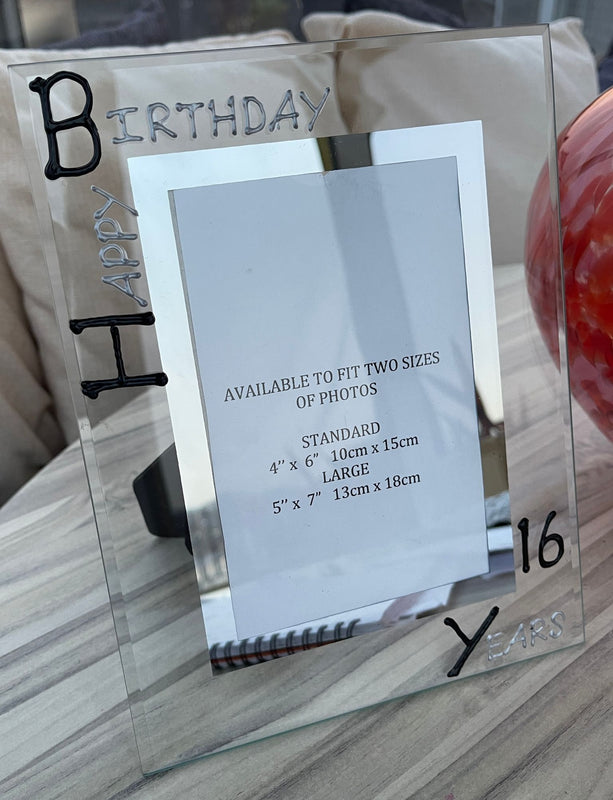 HAPPY
BIRTHDAY
AVAILABLE TO FIT TWO SIZES
OF PHOTOS
STANDARD
4’’ x 6’’ 10cm x 15cm
LARGE
5’’ x 7’’ 13cm x 18cm
16
YEARS